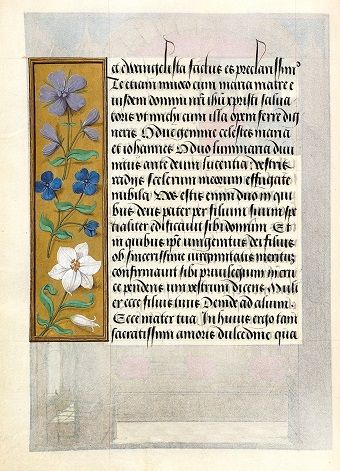 et evangelista factus es preclarissim9
Te etiam invoco cum maria matre e
iusdem domini nr̄i ihū xpristi salva
toris vt michi cum illa opem ferre dig
neris O due gemme celestes maria
et iohannes O duo luminaria divi
nitus ante deum lucentia: vestris
radijs scelerum meorum effugate
nubila Vos estis enim duo in qui
bus deus pater per filium suum spe
cialiter edificavit sibi domum Et
in quibus ip̄e unigenitus dei filius
ob sincerissime virginitatis meritum
confirmavit sibi privilegium in cru
ce pendens uni vestrum dicens Muli
er ecce filius tuus Deinde ad alium.
Ecce mater tua In huius ergo tam
sacratissimi amoris dulcedine qua